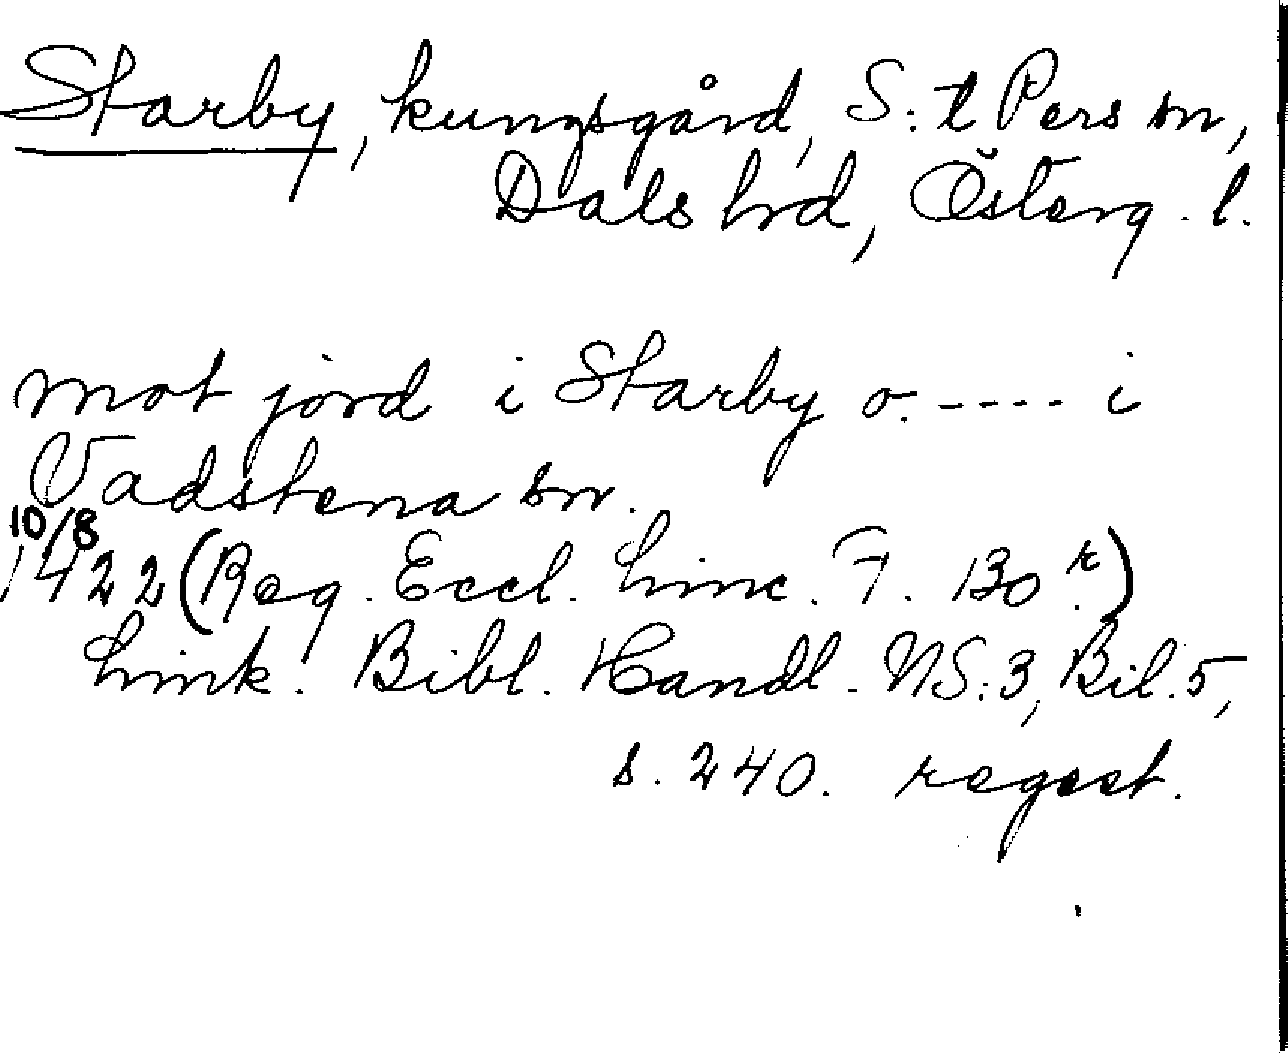 Starby, kungsgård, S:t Pers sn,
Dals hd, Österg. l.
mot jord i Starby o. ---- i
Vadstena sn.
10/8
1422 (Reg. Eccl. Linc. F. 130 r.)
Link. Bibl. Handl. NS:3, Bil. 5,
s. 240. regest.